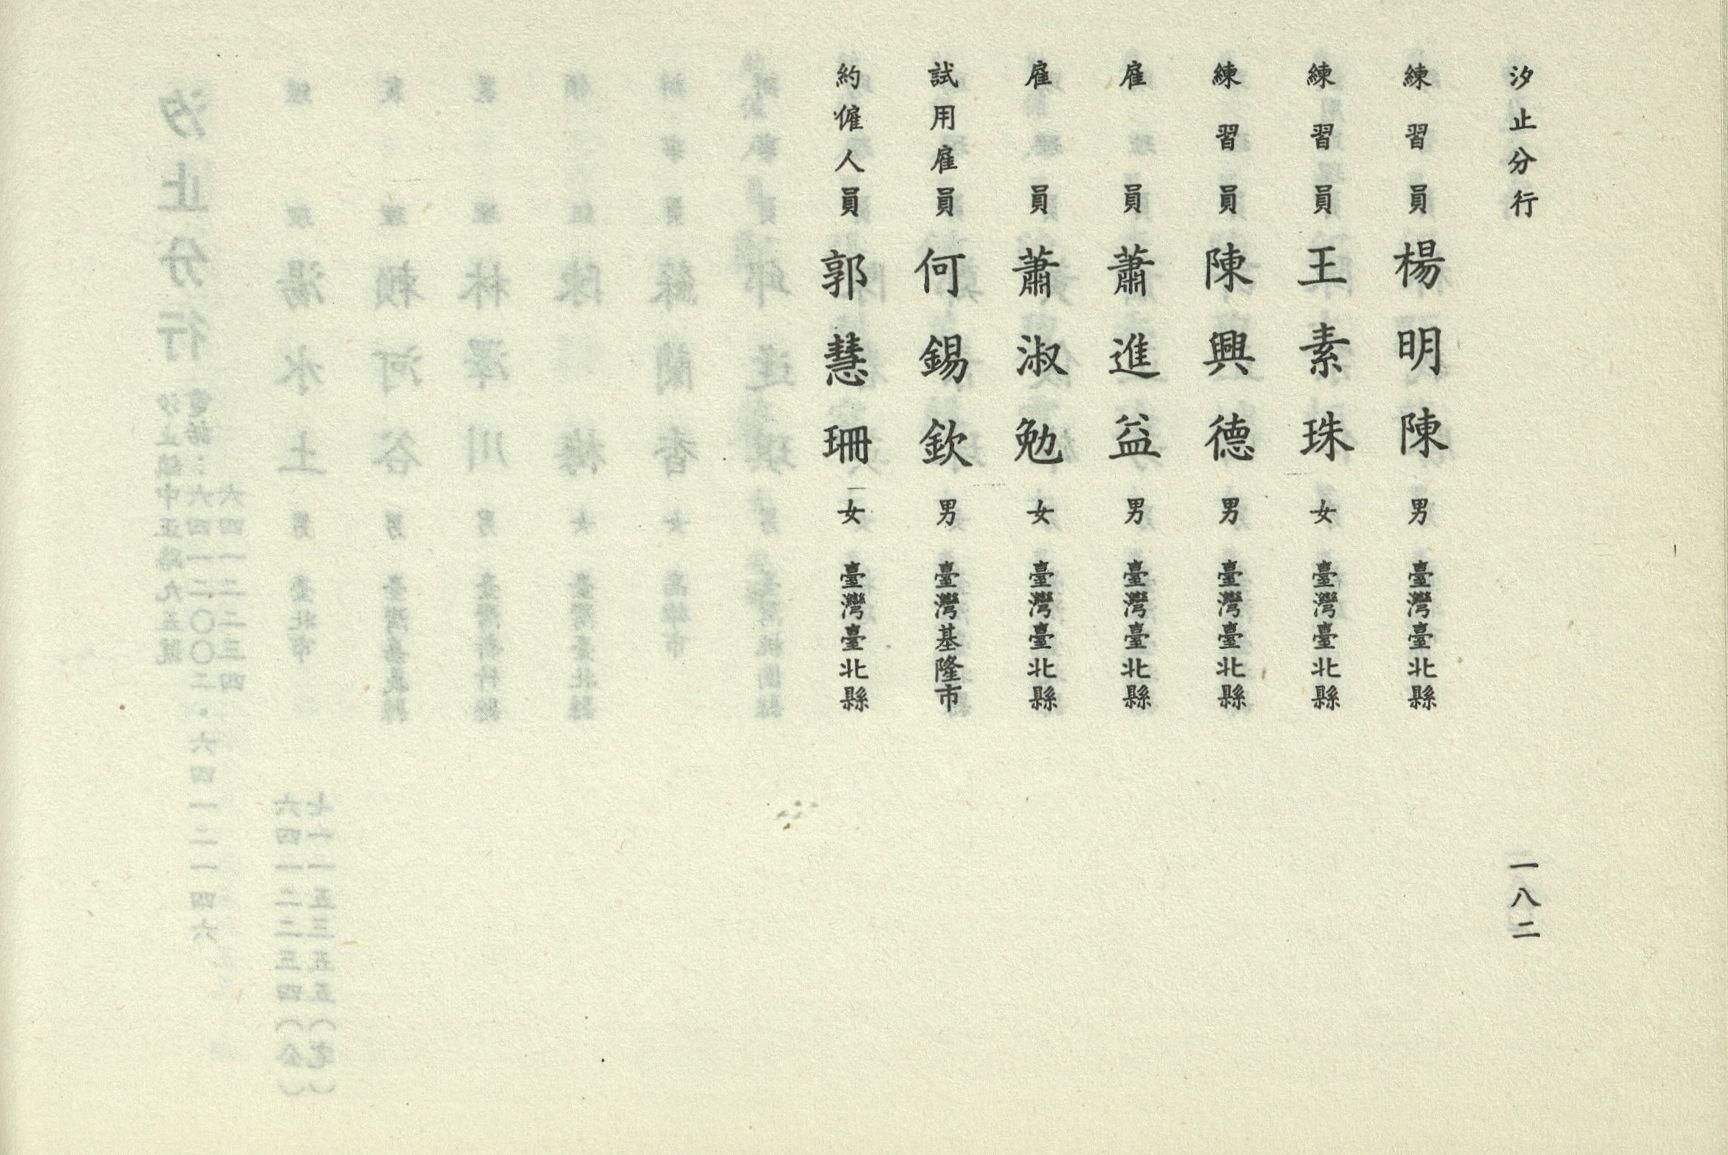 汐止分行
一八二
練習員 楊明陳 男 臺灣臺北縣
練習員 王素珠 女 臺灣臺北縣
練習員 陳興德 男 臺灣臺北縣
雇員 蕭進益 男 臺灣臺北縣
雇員 蕭淑勉 女 臺灣臺北縣
試用雇員 何錫欽 男 臺灣基隆市
約僱人員 郭慧珊 女 臺灣臺北縣